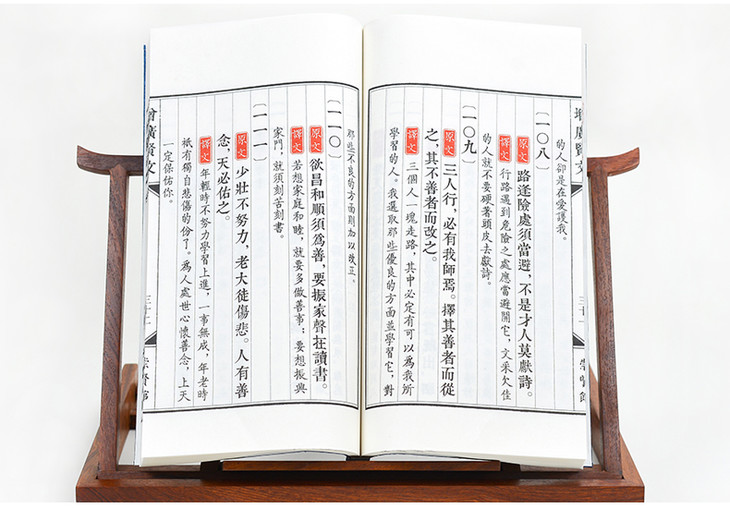 增廣賢文
三十一
崇賢館
的人卻是在愛護我。
〔一〇八〕
原文 路逢險處須當避，不是才人莫獻詩。
譯文 行路遇到危險之處應當避開它，文采欠佳
的人就不要硬著頭皮去獻詩。
〔一〇九〕
原文 三人行，必有我師焉。擇其善者而從
之，其不善者而改之。
譯文 三個人一塊走路，其中必定有可以為我所
學習的人。我選取那些優良的方面並學習它，對
那些不良的方面則加以改正。
〔一一〇〕
原文 欲昌和順須為善，要振家聲在讀書。
譯文 若想家庭和睦，就要多做善事；要想振興
家門，就須刻苦刻書。
〔一一一〕
原文 少壯不努力，老大徒傷悲。人有善
念，天必佑之。
譯文 年輕時不努力學習上進，一事無成，年老時
祇有獨自悲傷的份了。為人處世心懷善念，上天
一定保佑你。
增廣賢文
三十二
崇賢館